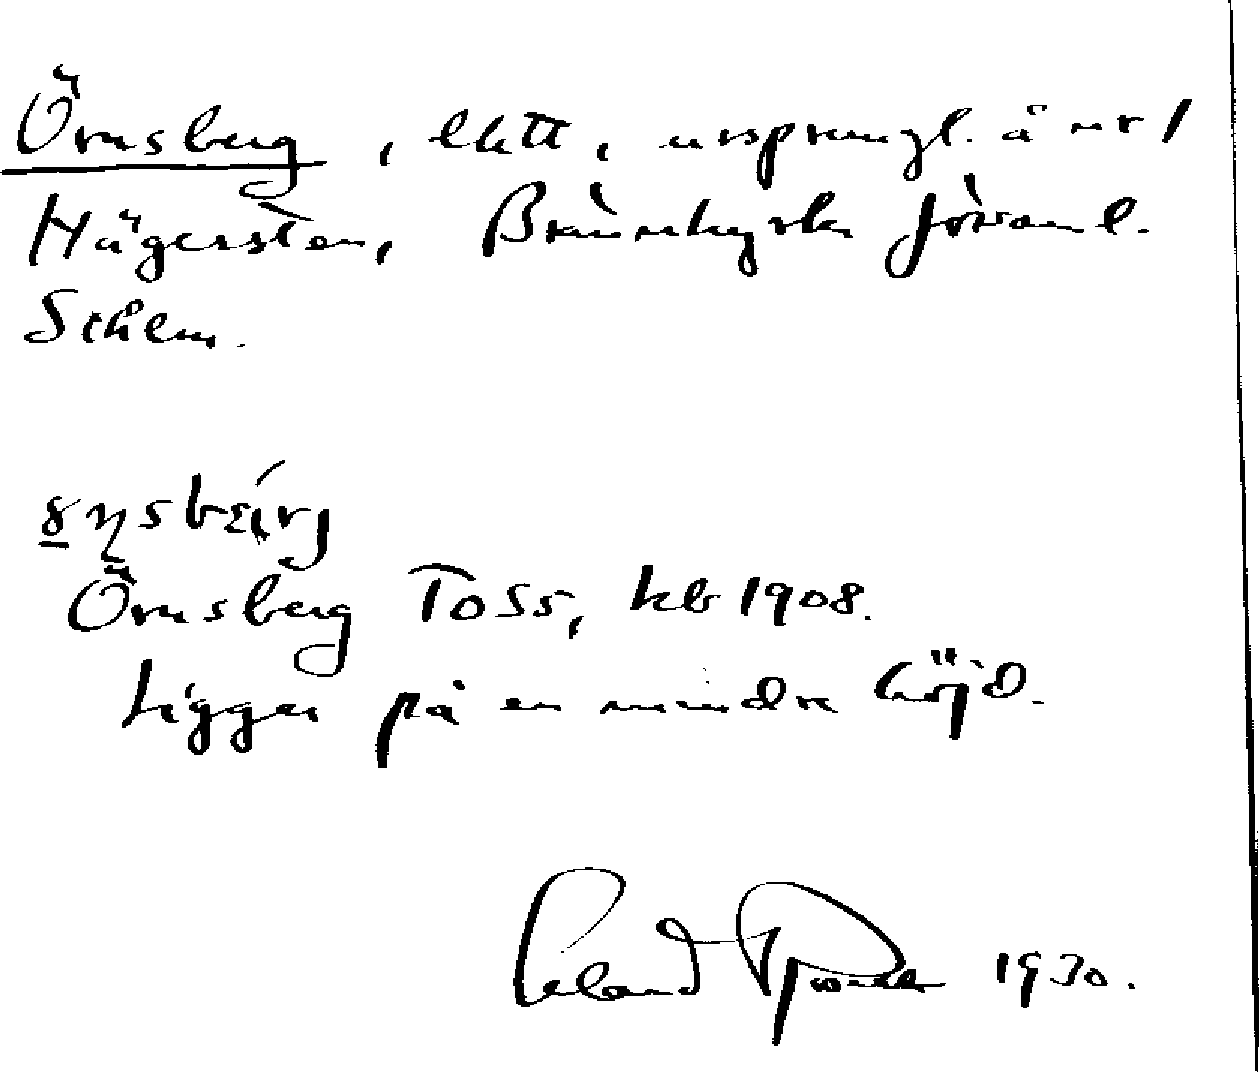 Örnsberg, lhtt, ursprungl. å nr 1
Hägersten, Brännkyrka församl.
Sthlm.
Örnsberg TOSS, kb 1908.
Ligger på en mindre höjd.
1930.